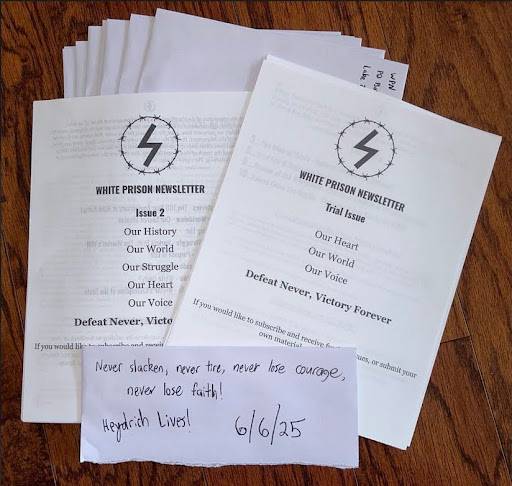 WPN
PO
WHITE PRISON NEWSLETTER
Issue 2
Our History
Our World
Our Struggle
Our Heart
Our Voice
Defeat Never,
If you would like to subscribe and
WHITE PRISON NEWSLETTER
Trial Issue
Our Heart
Our World
Our Voice
Defeat Never, Victory Forever
If you would like to subscribe and receive or submit your
own
Never slacken, never tire, never lose courage,
never lose faith!
Heydrich Lives!
6/6/25